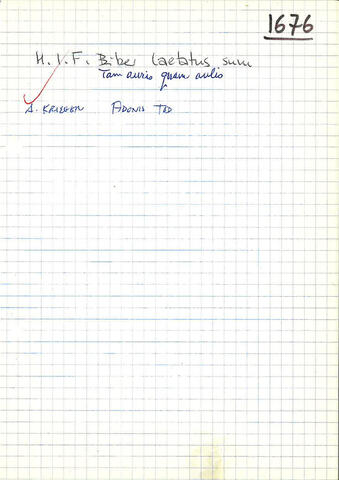 1676
H. I. F. Biber Laetatus sum
Tam auris quam aulis
A. KRIEGER ADONIS TOD